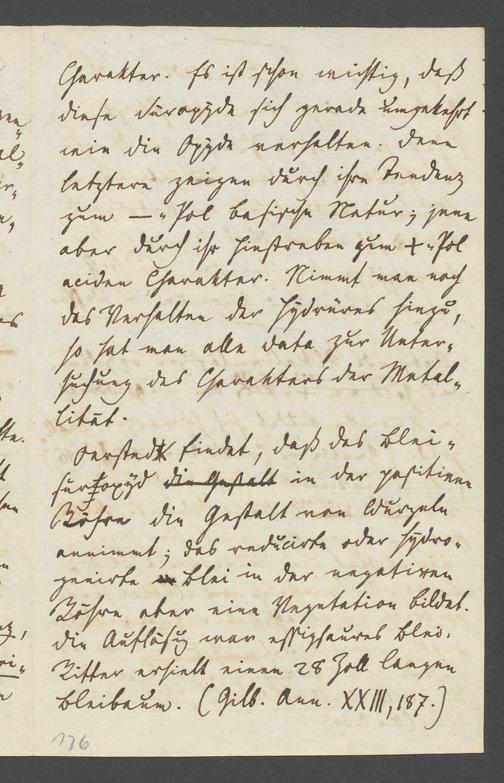 Charakter. Es ist schon wichtig, daß
diese Suroxyde sich gerade umgekehrt
wie die Oxyde verhalten. Denn
letztere zeigen durch ihre Tendenz
zum — „ Pol basische Natur; jene
aber durch ihr Hinstreben zum + „ Pol
aciden Charakter. Nimmt man noch
das Verhalten der Hydrüres hinzu,
so hat man alle data zur Unter„
suchung des Charakters der Metal„
lität.
Oersted findet, daß das Blei„
suroxyd die Gestalt in der positiven
Röhre die Gestalt von Wurzeln
annimmt; das reducirte oder hydro„
genirte Blei in der negativen
Röhre aber eine Vegetation bildet.
die Auflösung war essigsaures Blei.
Ritter erhielt einen 28 Zoll langen
Bleibaum. (Gilb. Ann. XXIII, 187.)
136